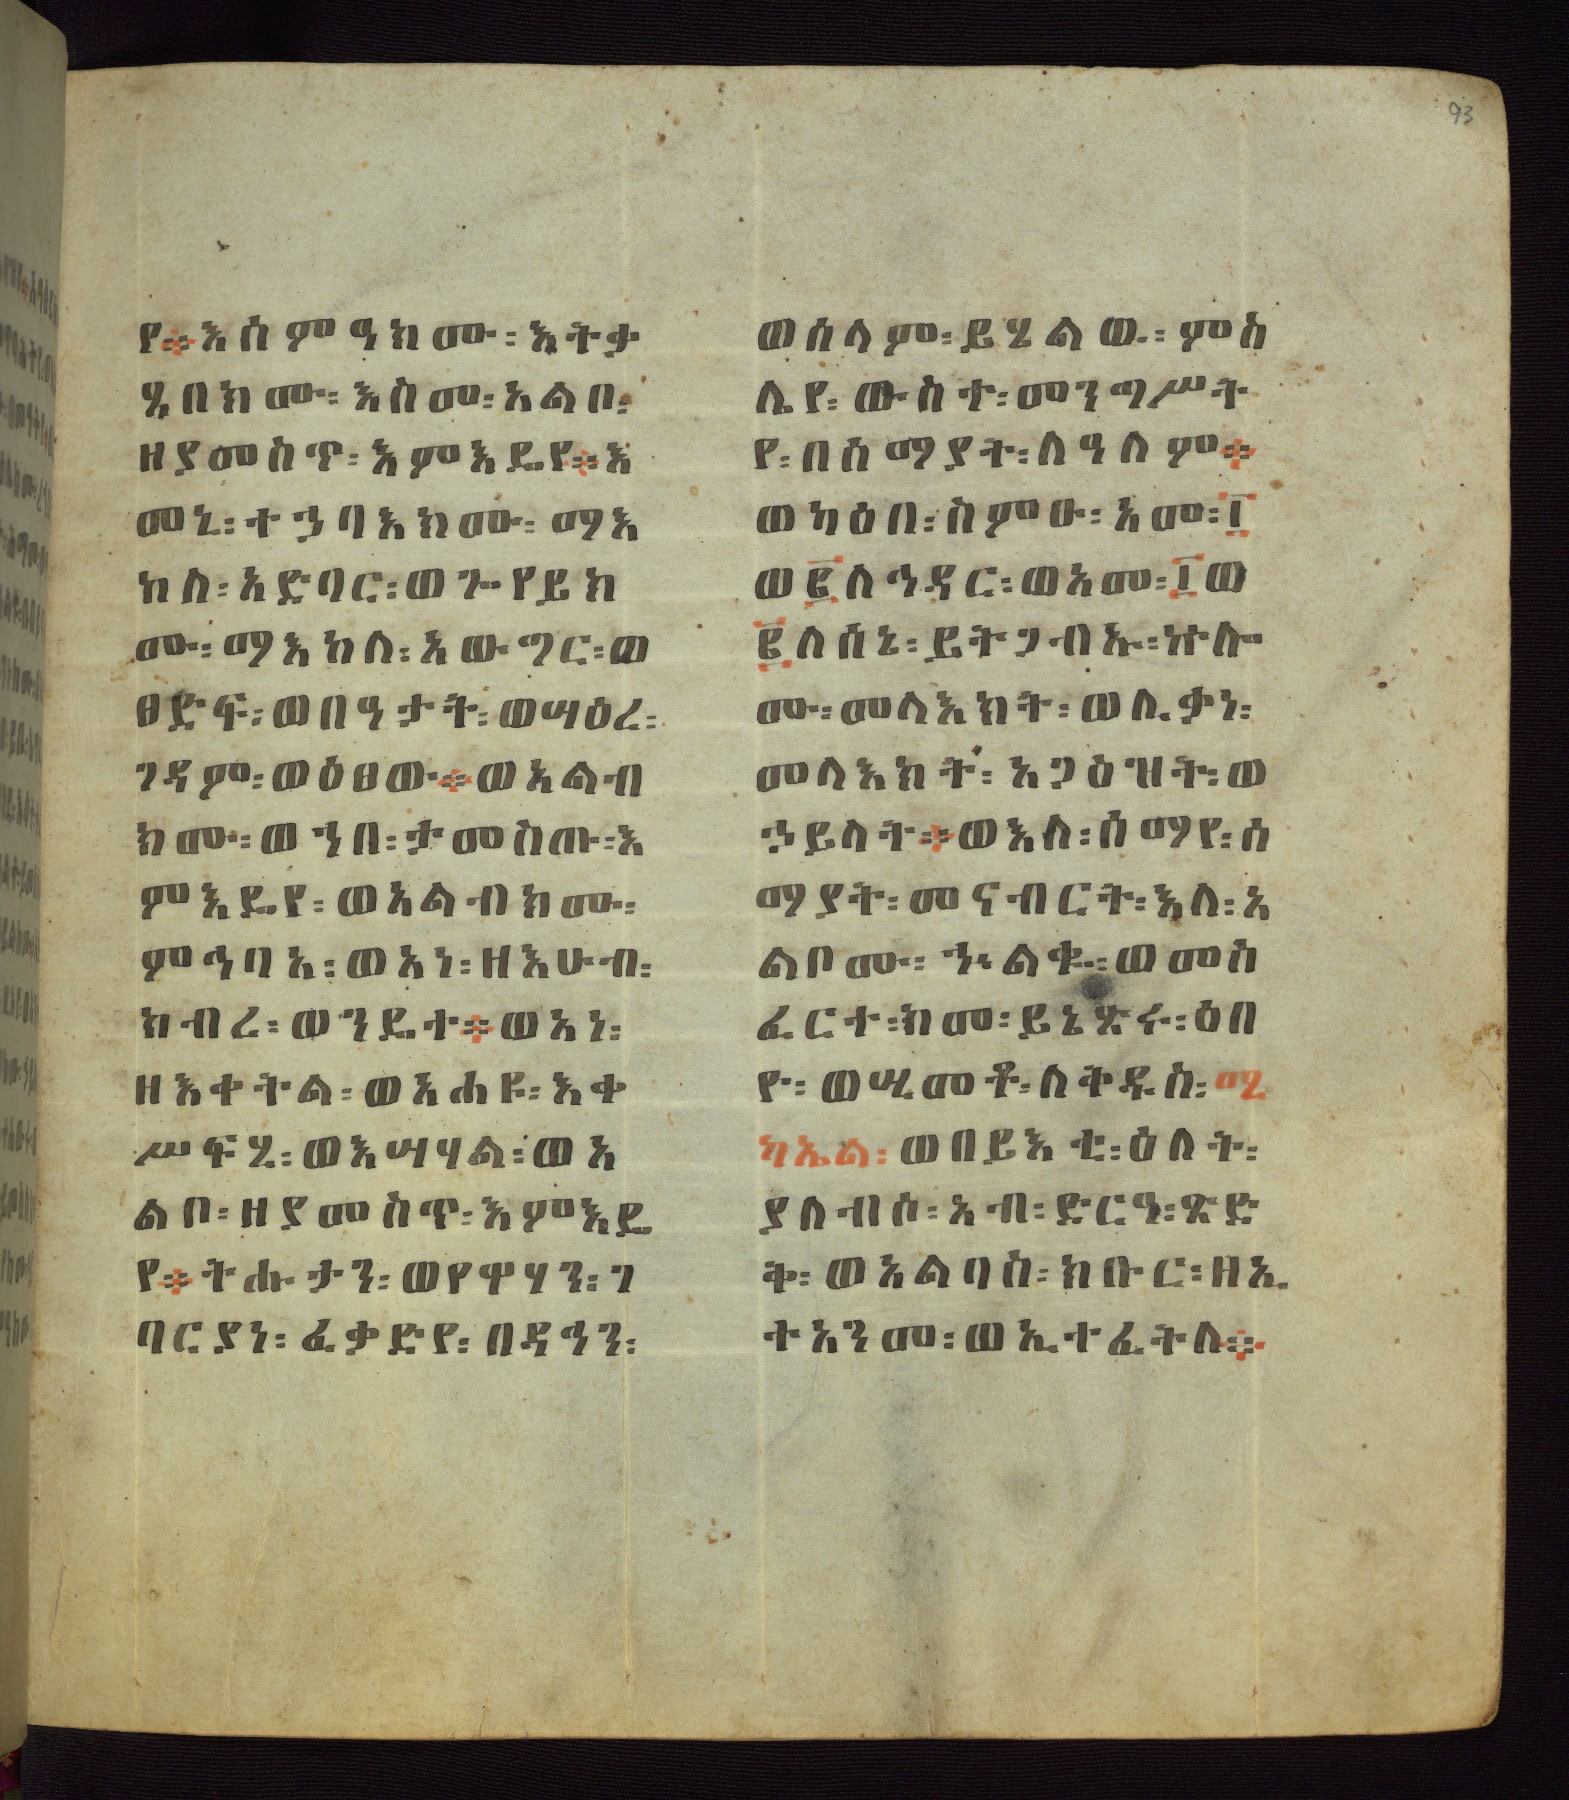 93
የ፨እስምዓክሙ፡እትቃ
ሄበክሙ፡እስመ፡አልቦ፡
ዘያመስጥ፡እምእዴየ፨እ
መኒ፡ተኃባእክሙ፡ማእ
ከለ፡አድባር፡ወጐየይክ
ሙ፡ማእከለ፡አውግር፡ወ
ፀድፍ፡ወበዓታት፡ወሣዕረ፡
ገዳም፡ወዕፀው፨ወአልብ
ክሙ፡ወኀበ፡ታመስጡ፡እ
ምእዴየ፡ወአልብክሙ፡
ምኅባአ፡ወአነ፡ዘእሁብ፡
ክብረ፡ወንዴተ፨ወአነ፡
ዘእቀትል፡ወአሐዩ፡እቀ
ሥፍሂ፡ወእሣሃል፡ወአ
ልቦ፡ዘያመስጥ፡እምእዴ
የ፨ትሑታን፡ወየዋሃን፡ገ
ባርያነ፡ፈቃድየ፡በዳኅን፡
ወሰላም፡ይሄልው፡ምስ
ሌየ፡ውስተ፡መንግሥት
የ፡በሰማያት፡ለዓለም፨
ወካዕበ፡ስምዑ፡አመ፡፲
ወ፪ለኅዳር፡ወአመ፡፲ወ
፪ለሰኔ፡ይትጋብኡ፡ኵሎ
ሙ፡መላእክት፡ወሊቃነ፡
መላእክት፡አጋዕዝት፡ወ
ኃይላት፨ወእለ፡ሰማየ፡ሰ
ማያት፡መናብርት፡እለ፡አ
ልቦሙ፡ኍልቁ፡ወመስ
ፈርተ፡ከመ፡ይኔጽሩ፡ዕበ
ዮ፡ወሢመቶ፡ለቅዱስ፡ሚ
ካኤል፡ወበይእቲ፡ዕለት፡
ያለብሶ፡አብ፡ድርዓ፡ጽድ
ቅ፡ወአልባሰ፡ክቡር፡ዘኢ
ተአንመ፡ወኢተፈትለ፨